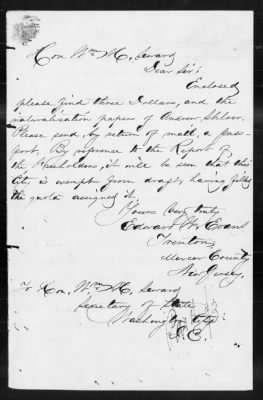 Hon. Wm H. Seward
Dear Sir:
Enclosed
please find three Dollars, and the
naturalisation papers of Andrew
Please send, by return of mail, a pass-
port. By reference to the Report of
the it will be seen that this
City is exempt from draft, having filled
the quota assigned it.
Yours very truly
Edward W. Evans
Trenton,
Mercer County
New Jersey.
To Hon. Wm H. Seward
Secretary of State
Washington City
D.C.